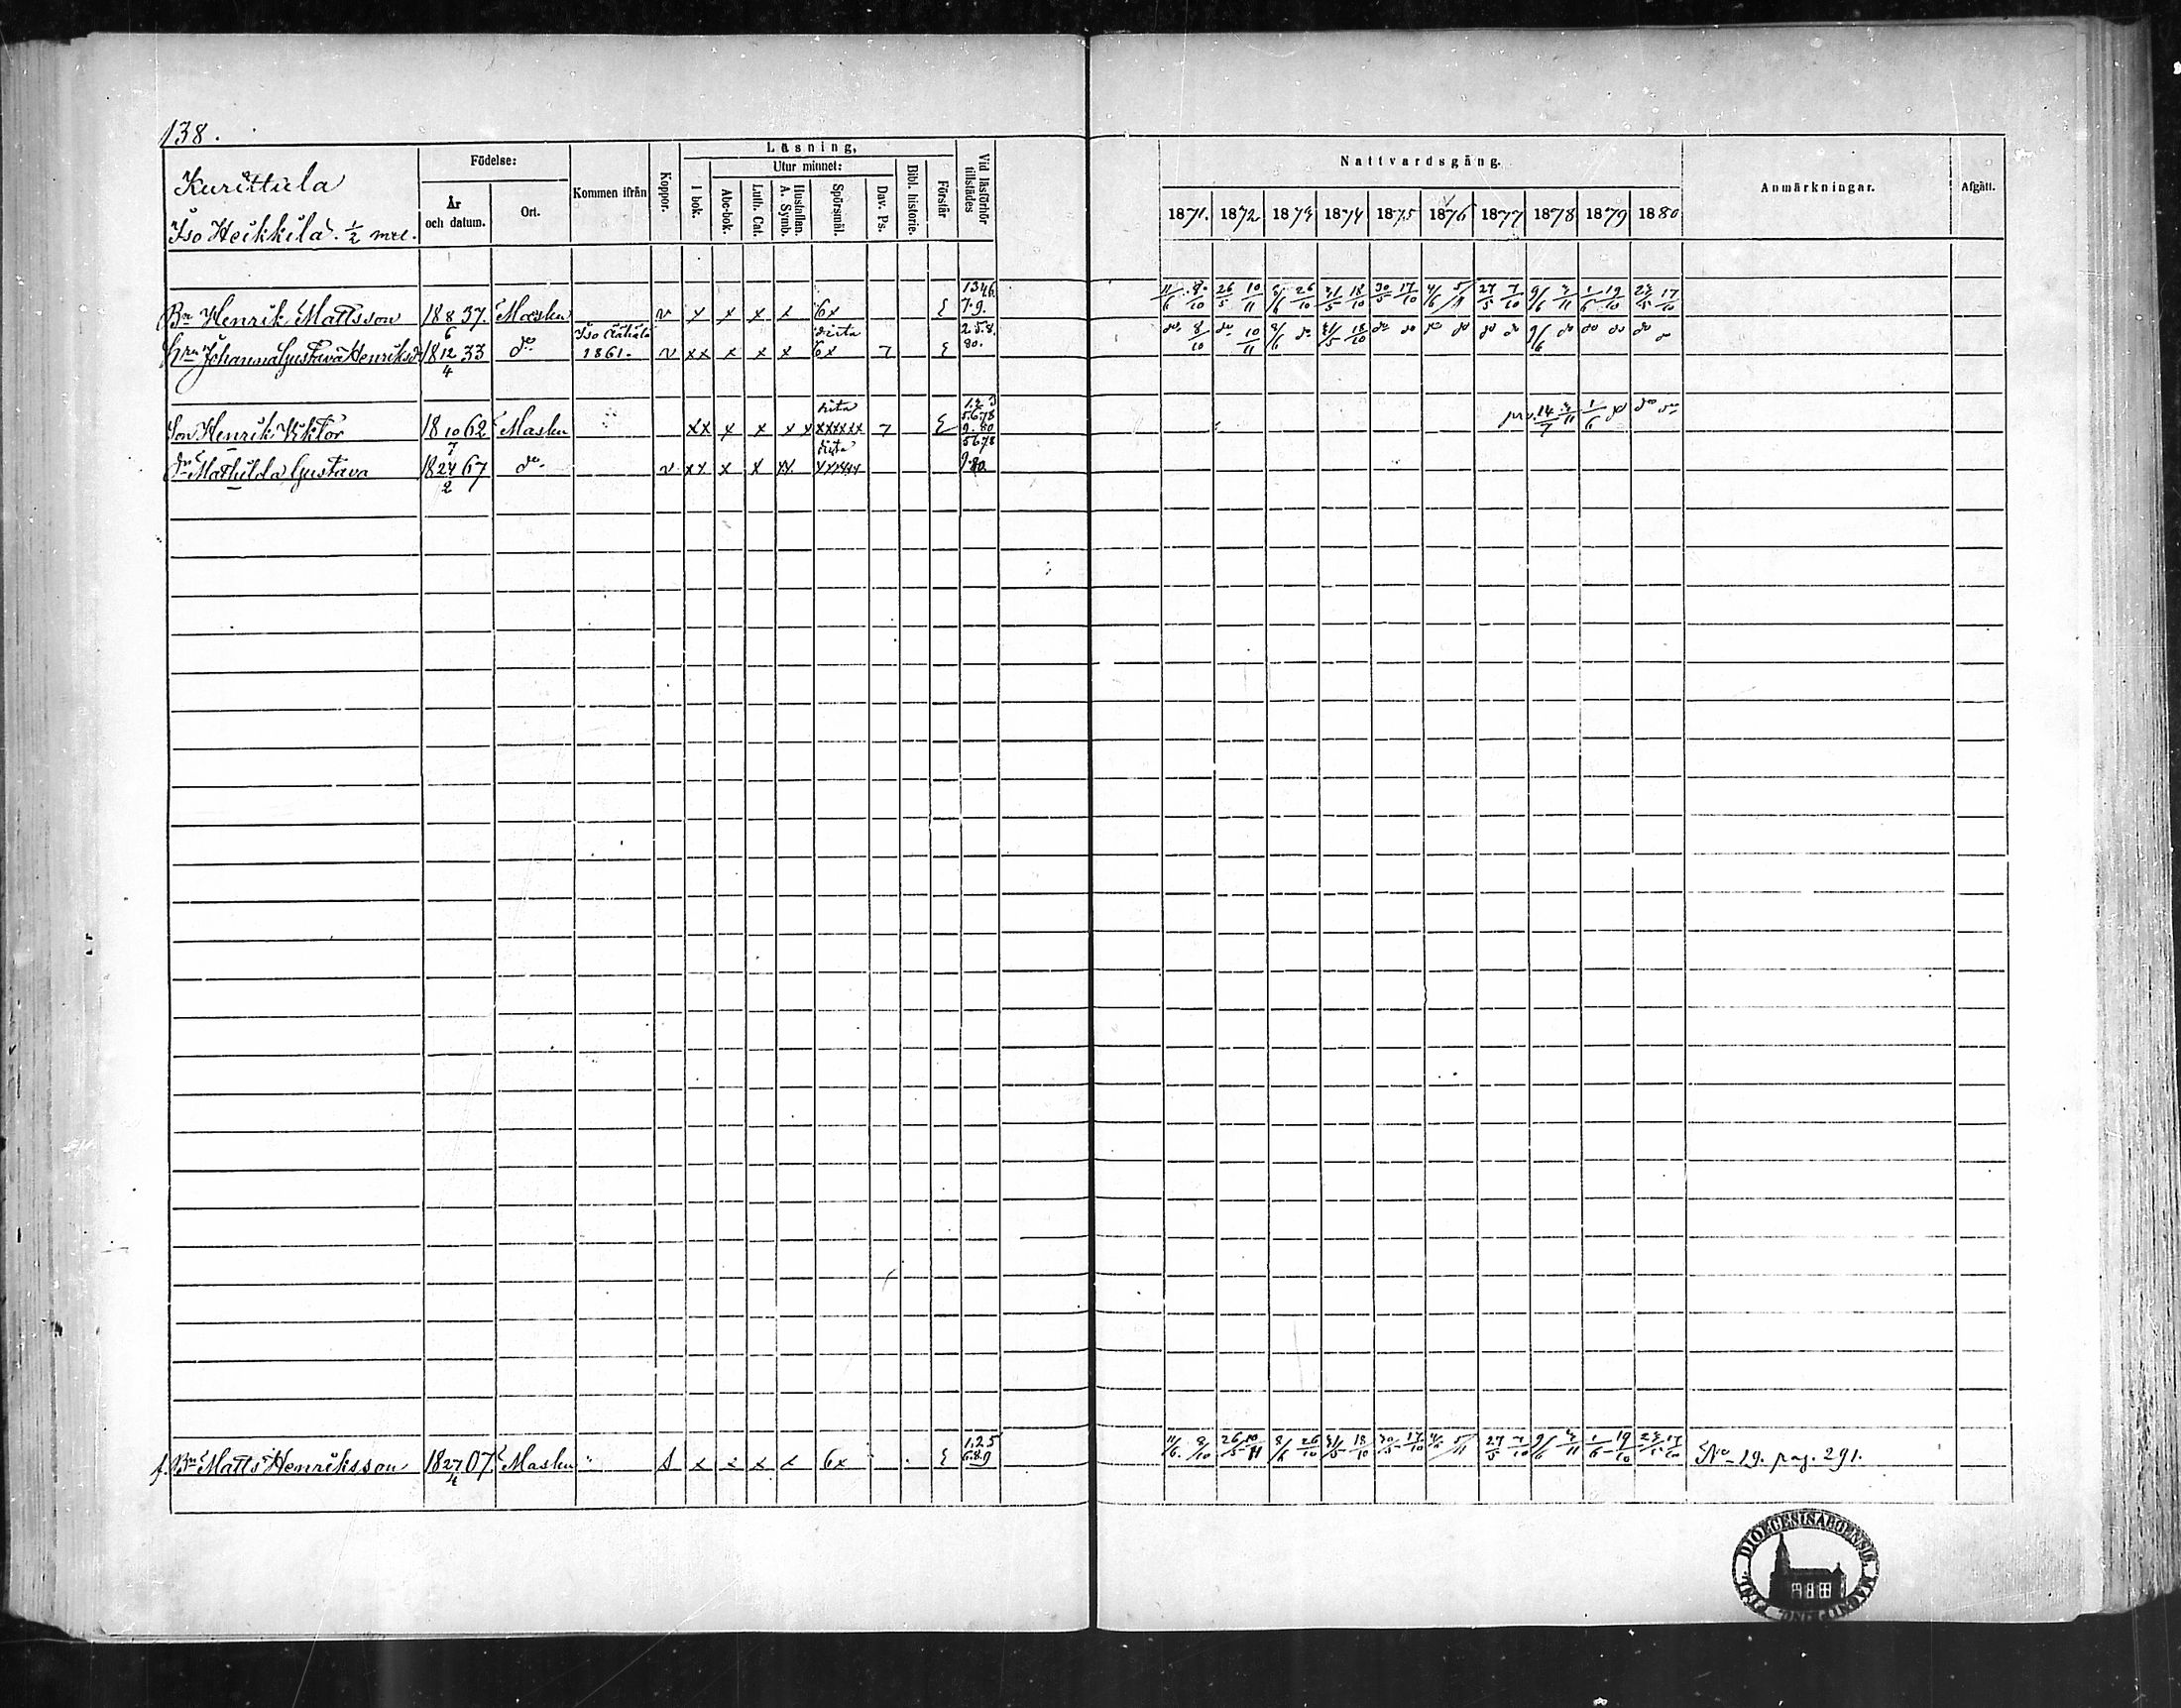 138.
Kurittula
Iso Heikkilä. 1/2 mtl.
Födelse:
År och datum.
Ort.
Kommen ifrån
Koppor.
Läsning,
I bok.
Utur minnet:
Abc-bok.
Luth. Cat.
Hustaflan. A. Symb.
Spörsmål.
Dav. Ps.
Bibl. historie.
Förstår
Vid läsförhör tillstädes
Nattvardsgång.
1871. 1872 1873 1874 1875 1876 1877 1878 1879 1880
Anmärkningar.
Afgått.
Bn Henrik Mattsson 18 8/6 37. Masku v x x x x 6x 1346. 7.9. 11/6 8/10 26/5 10/11 8/6 26/10 31/5 18/10 30/5 17/10 4/6 5/11 27/5 7/10 9/6 3/11 1/6 19/10 23/5 17/10
Hru Johanna Gustava Henriksdr 18 12/4 33 do 1861. v xx x x x 6x 2.5.8. 80. do 8/10 do 10/11 8/6 do 31/5 18/10 do do do do do do 9/6 do do do do
Son Henrik Viktor 18 10/7 62 Masku xx x x xx xxxxxx 5.6.78 9.80 14/7 3/11 1/6 do do
dr Mathilda Gustava 18 24/2 67 do v xx x x xx xxxxxx 5678 9.80
f. Bn Matts Henriksson 18 27/4 07. Masku x x x x 6x 1.2.5 6.8.9 11/6 8/10 26/5 10/11 8/6 26/10 31/5 18/10 30/5 17/10 4/6 5/11 27/5 7/10 9/6 3/11 1/6 19/10 23/5 17/10 No 19. pag. 291.